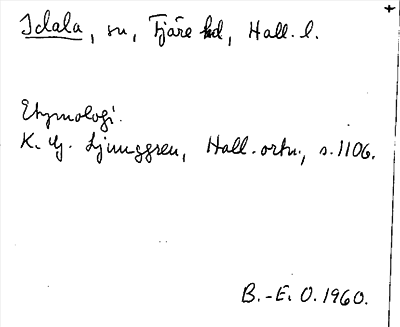 Idala, sn, Fjäre hd, Hall. l.
Etymologi.
K. G. Ljunggren, Hall. ortn., s. 1106.
B.-E. O. 1960.